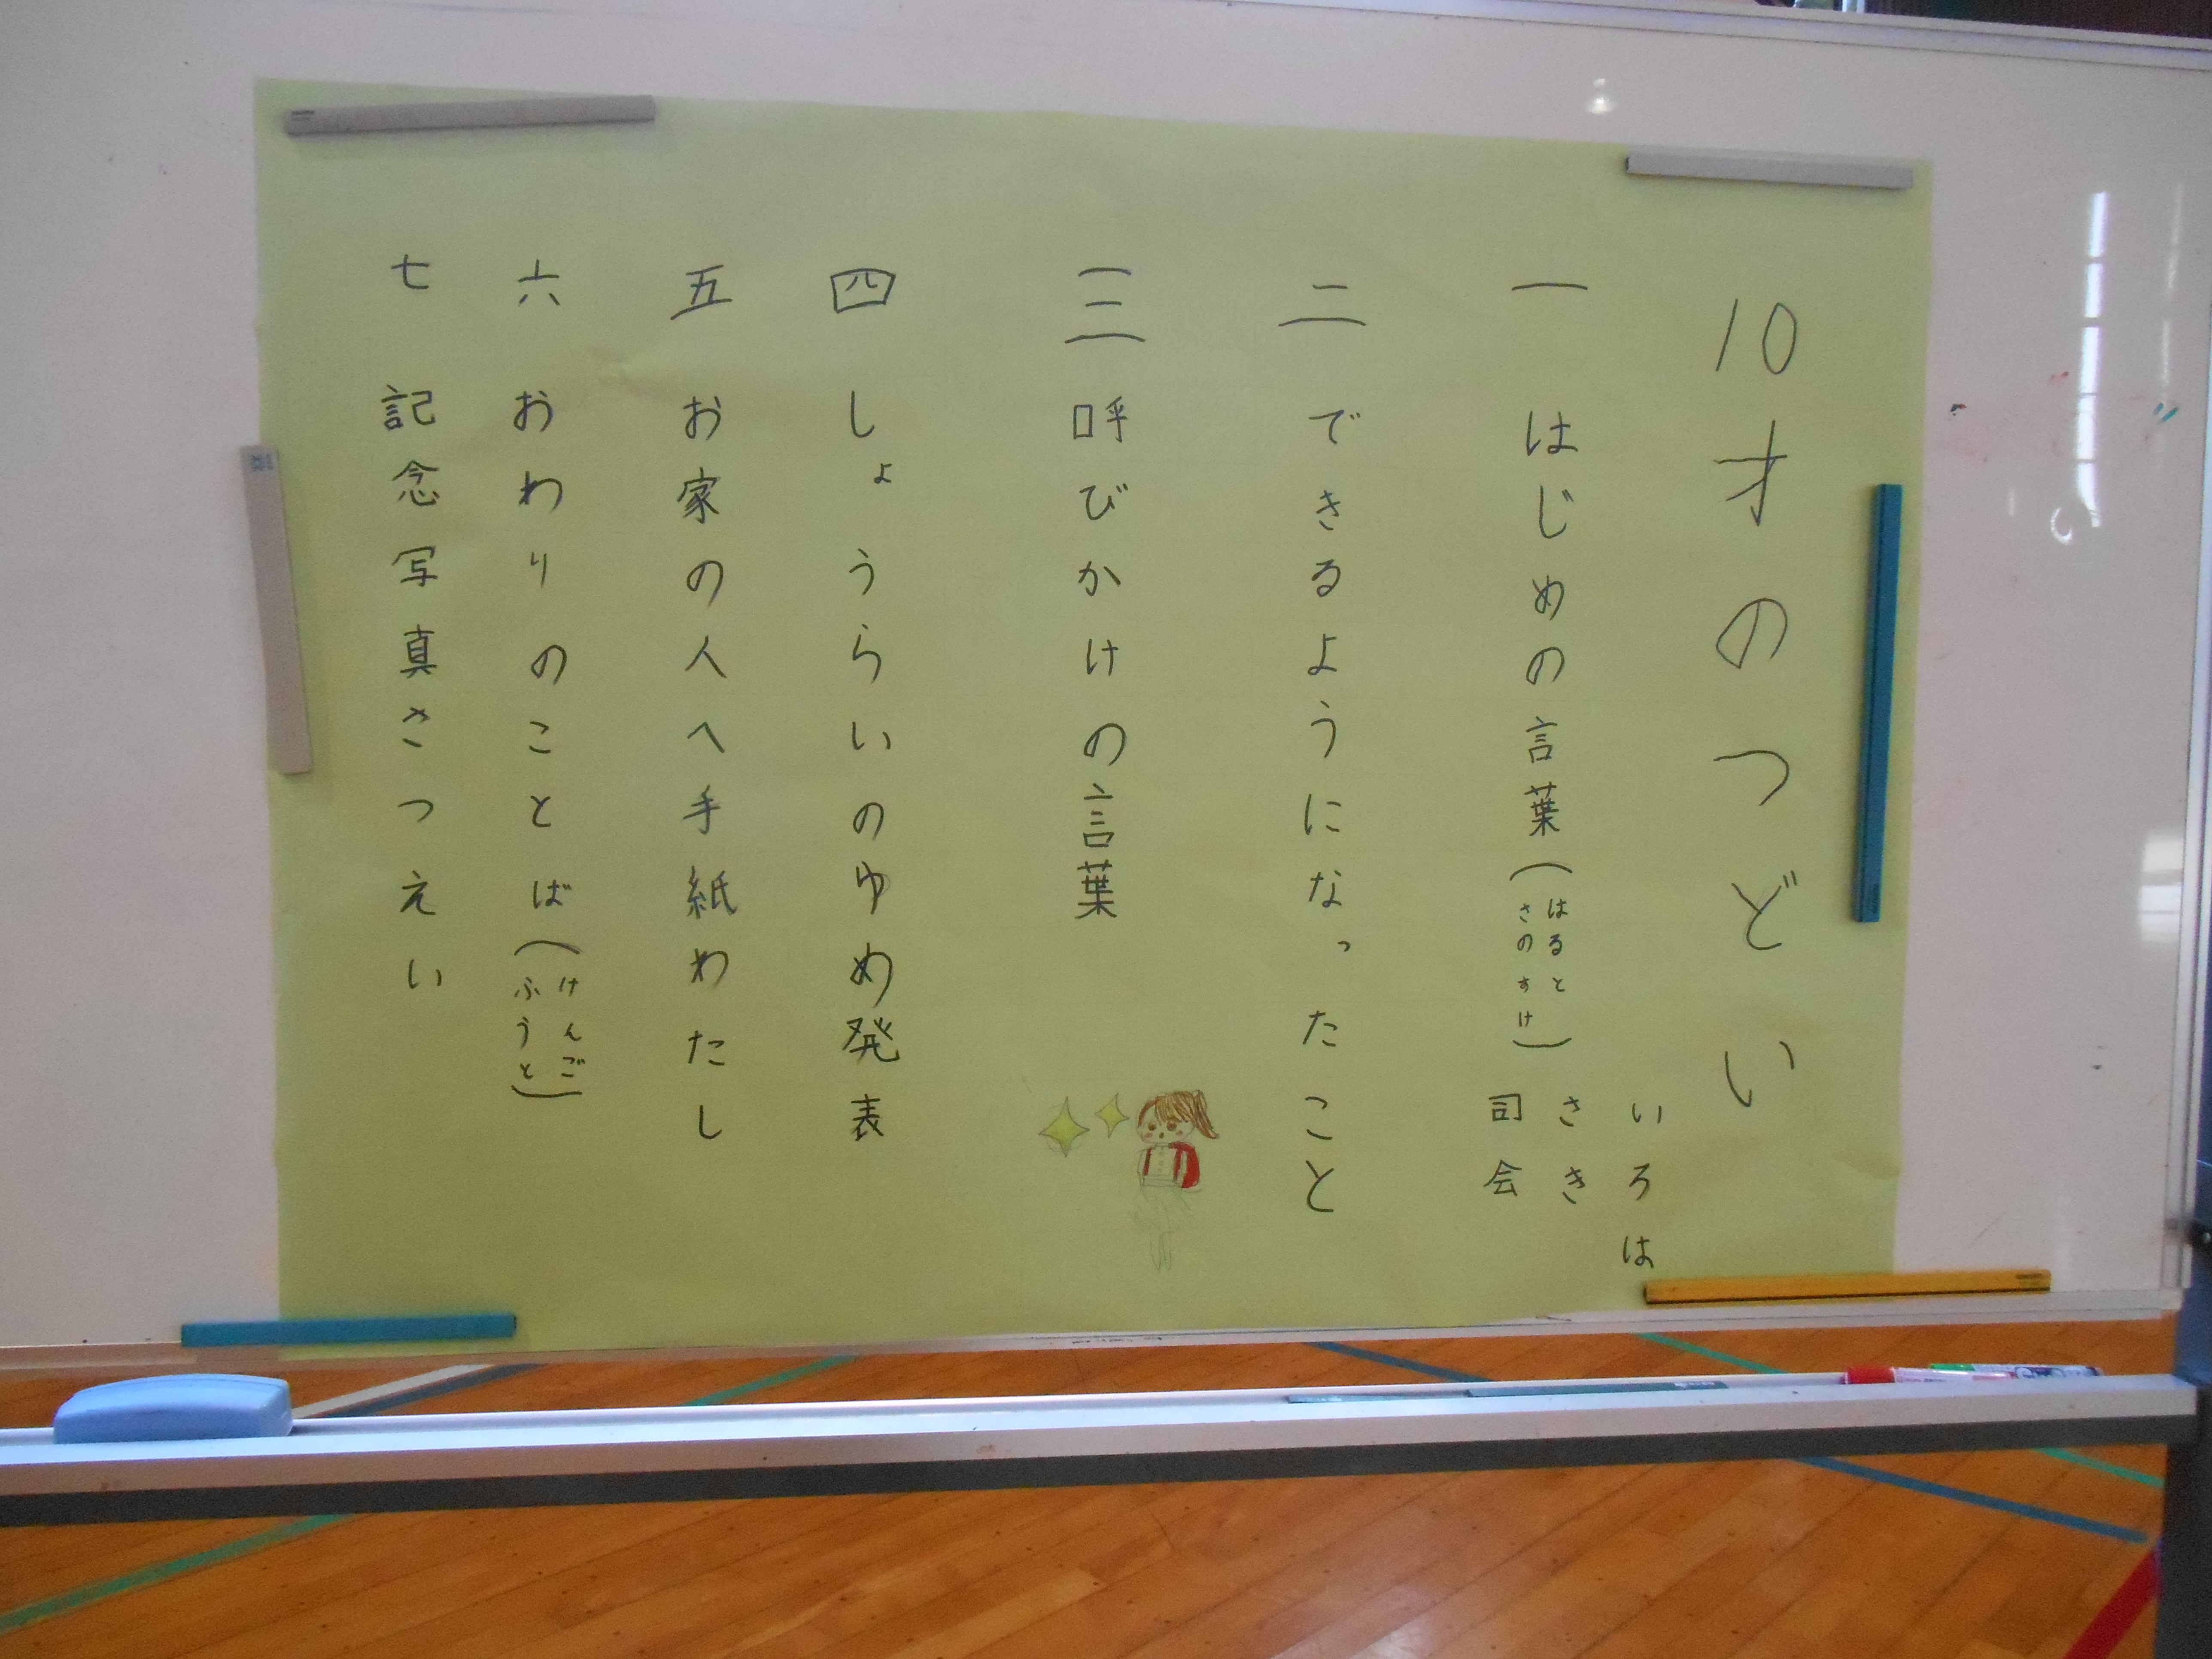 10才のつどい
いろは
ささき
司会
一 はじめの言葉(はるとさのすけ)
二 できるようになったこと
三 呼びかけの言葉
四 しょうらいのゆめ発表
五 お家の人へ手紙わたし
六 おわりのことば(けんごふうと)
七 記念写真さつえい